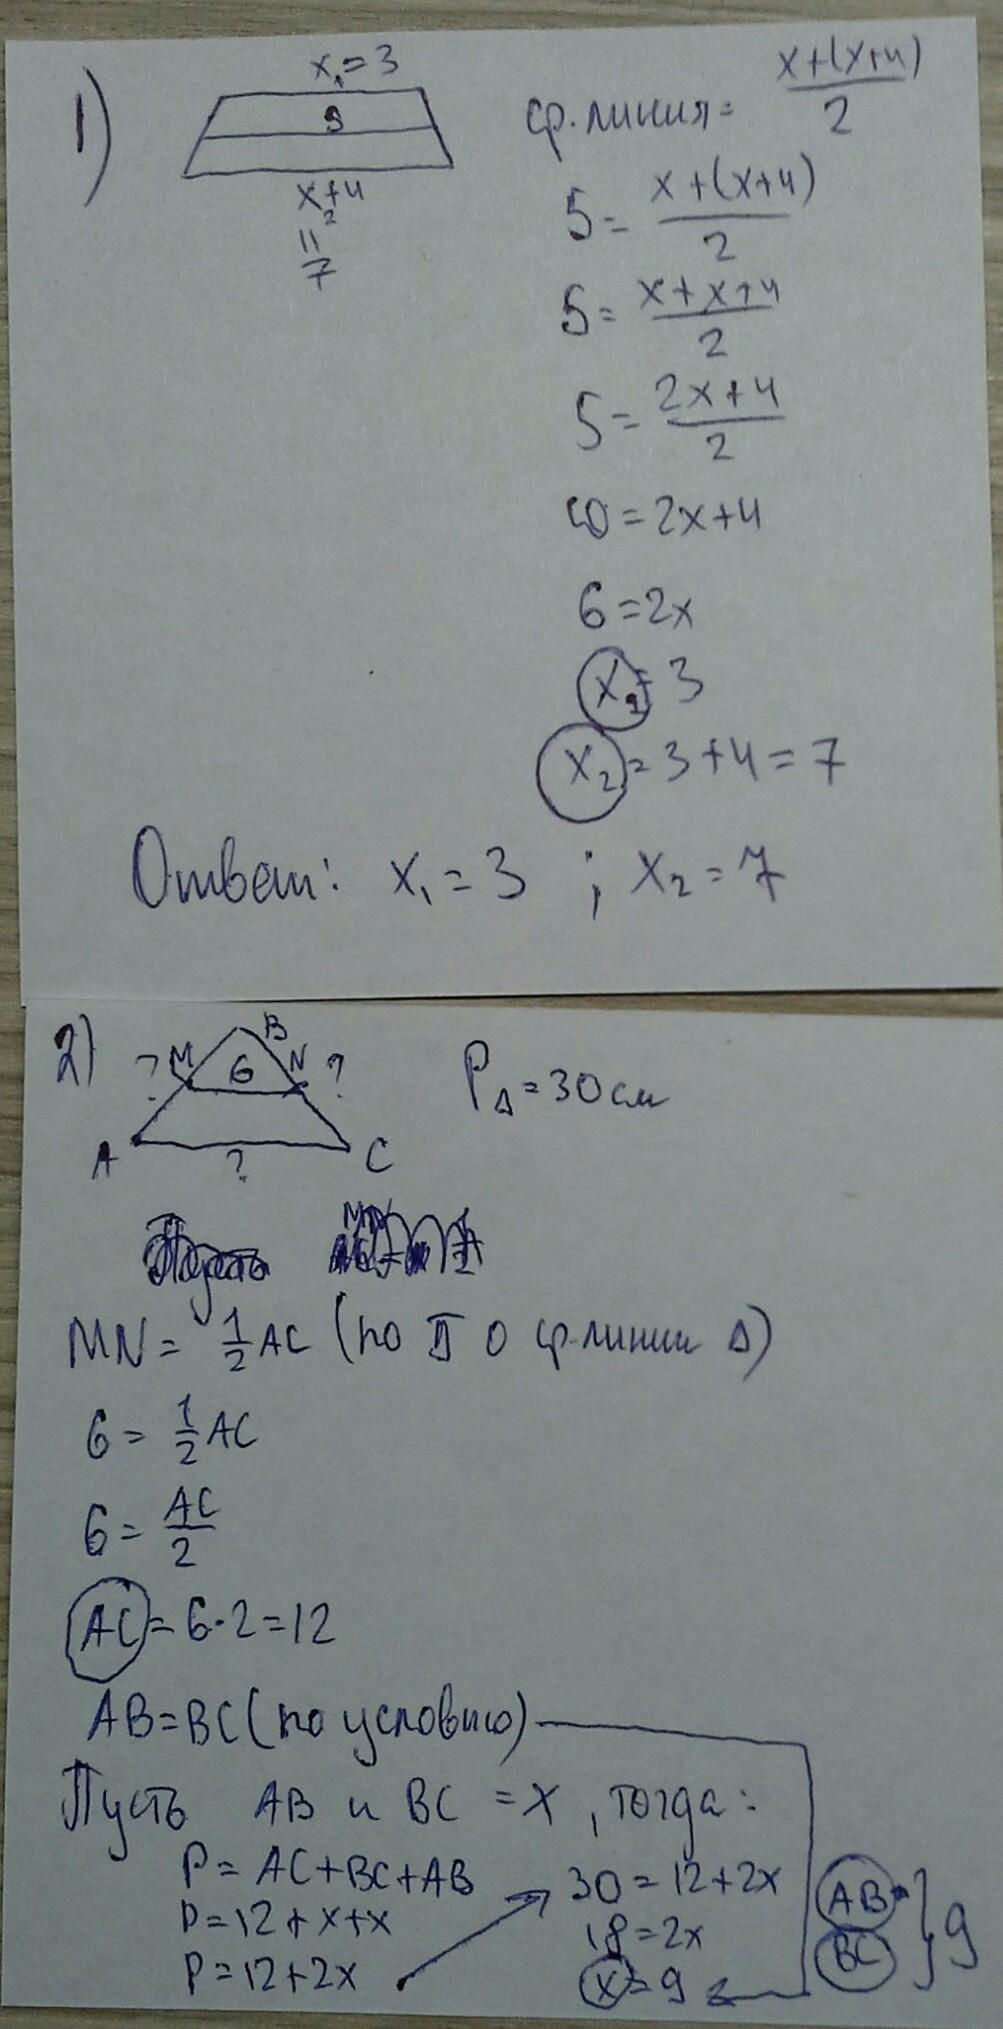 1)
x₁=3
5
x₂+4
=
7
ср. линия = (x+(x+4))/2
5 = (x+(x+4))/2
5 = (x+x+4)/2
5 = (2x+4)/2
10 = 2x+4
6 = 2x
x₁ = 3
x₂ = 3+4 = 7
Ответ: x₁ = 3 ; x₂ = 7
2)
B
? M 6 N ?
A ? C
P△ = 30 см
Пусть
MN = 1/2 AC (по П о ср. линии △)
6 = 1/2 AC
6 = AC/2
AC = 6·2 = 12
AB = BC (по условию)
Пусть AB и BC = x, тогда:
P = AC+BC+AB
P = 12+x+x
P = 12+2x
30 = 12+2x
18 = 2x
x = 9
AB
BC } 9